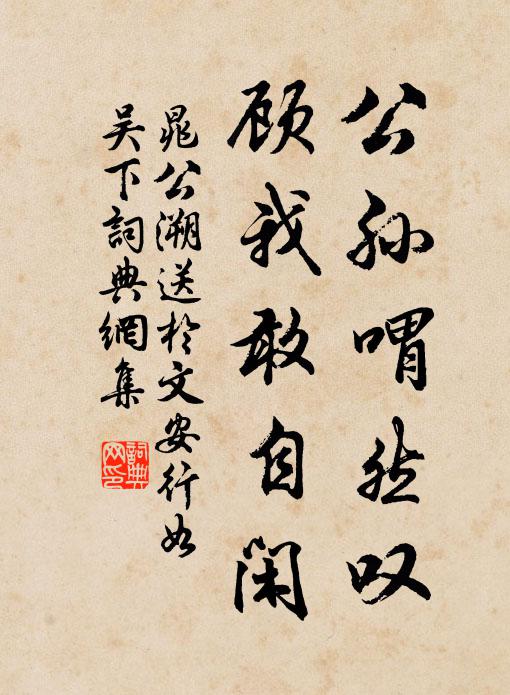 公孙喟然叹
顾我敢自闲
晁公溯送於文安行如
吴下詞典網集
詞典
网印